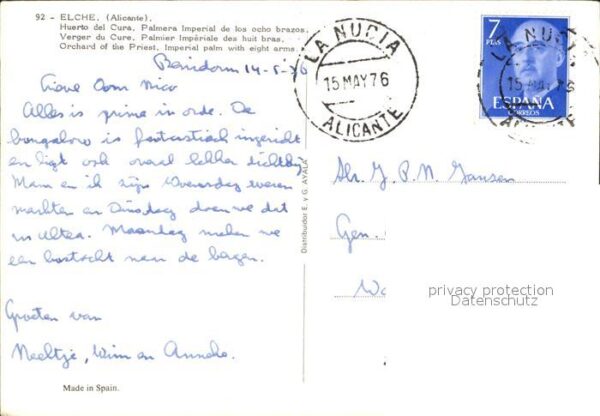 92 - ELCHE. (Alicante).
Huerto del Cura. Palmera Imperial de los ocho brazos.
Verger du Cure. Palmier Impériale des huit bras.
Orchard of the Priest. Imperial palm with eight arms
Benidorm 14-5-76
Oom Nico
Alles is prima in orde. De
bungalow is fantastisch ingericht
en ligt ook overal lekker dichtbij
Mam en ik zijn woensdag wezen
markten en Dinsdag doen we dat
in Altea. Maandag maken we
een bustocht naar de bergen.
Groeten van
Neeltje, Wim en Anneke.
Made in Spain.
Distribuidor E. y G. AYALA
LA NUCIA
15 MAY 76
ALICANTE
7
PTAS
ESPAÑA
CORREOS
LA NUCIA
15 MAY 76
ALICANTE
Dhr. J. P. N. Jansen
Gen.
privacy protection
Datenschutz